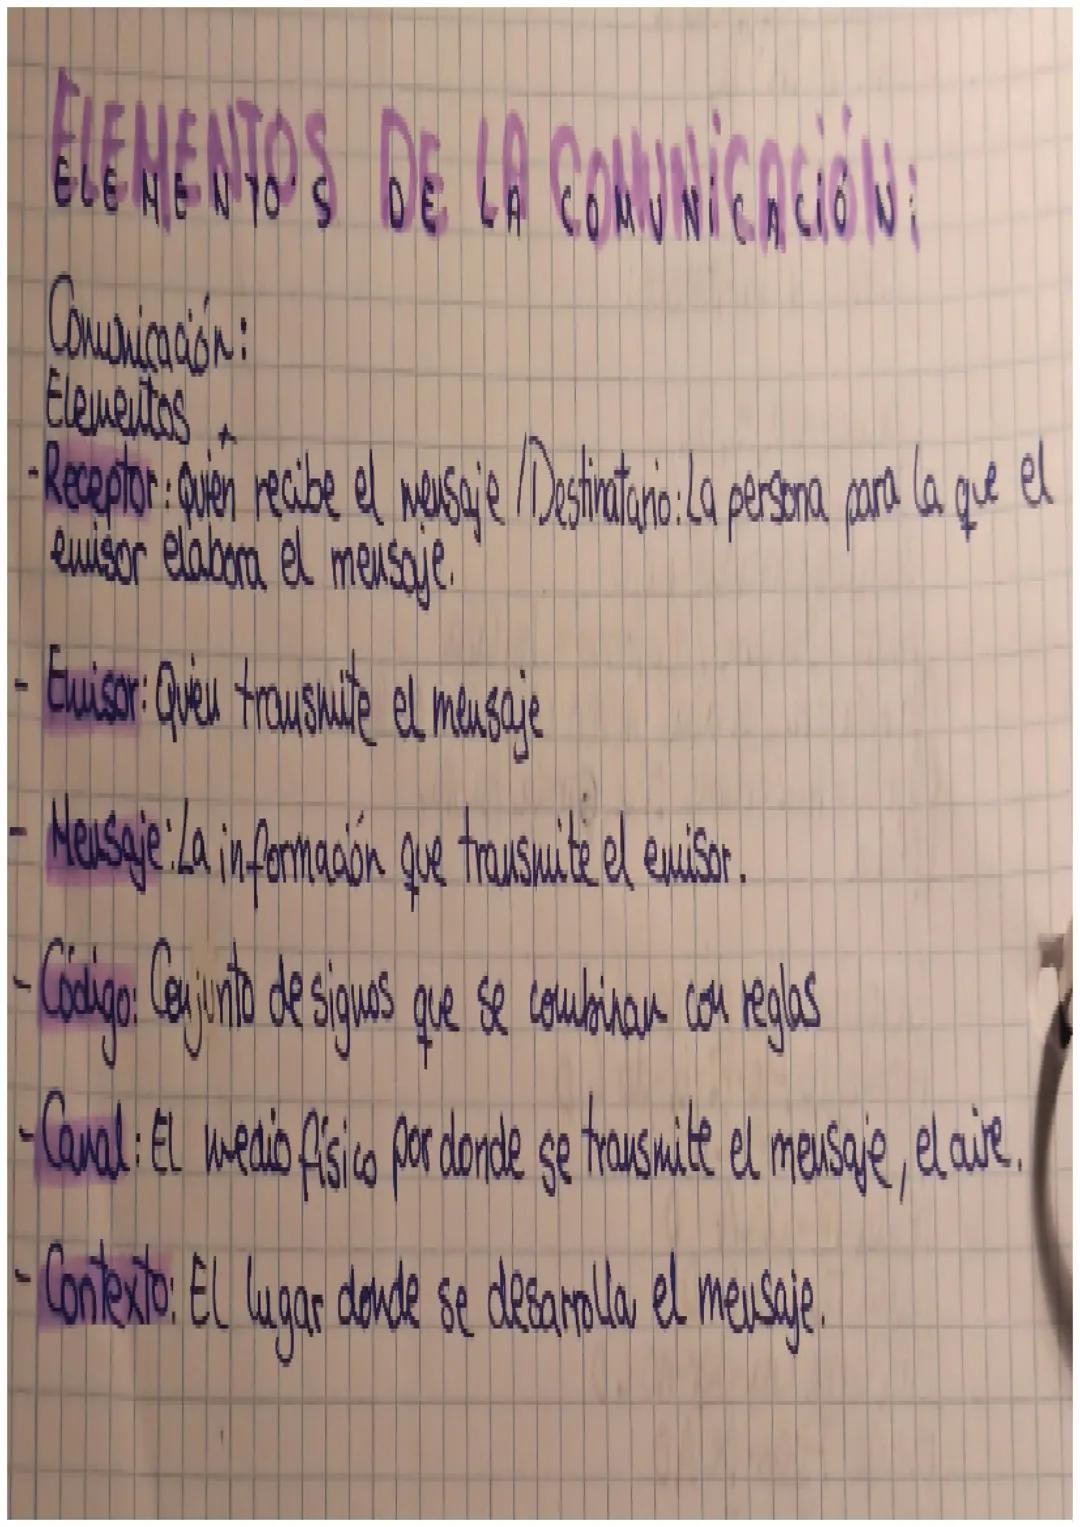 ELEMENTOS DE LA COMUNICACIÓN:
Comunicación:
Elementos
-Receptor: Quién recibe el mensaje /Destinatario: La persona para la que el
emisor elabora el mensaje.
- Emisor: Quien transmite el mensaje
- Mensaje: La información que transmite el emisor.
- Código: Conjunto de signos que se combinan con reglas
- Canal: El medio físico por donde se transmite el mensaje, el aire.
- Contexto: El lugar donde se desarrolla el mensaje.